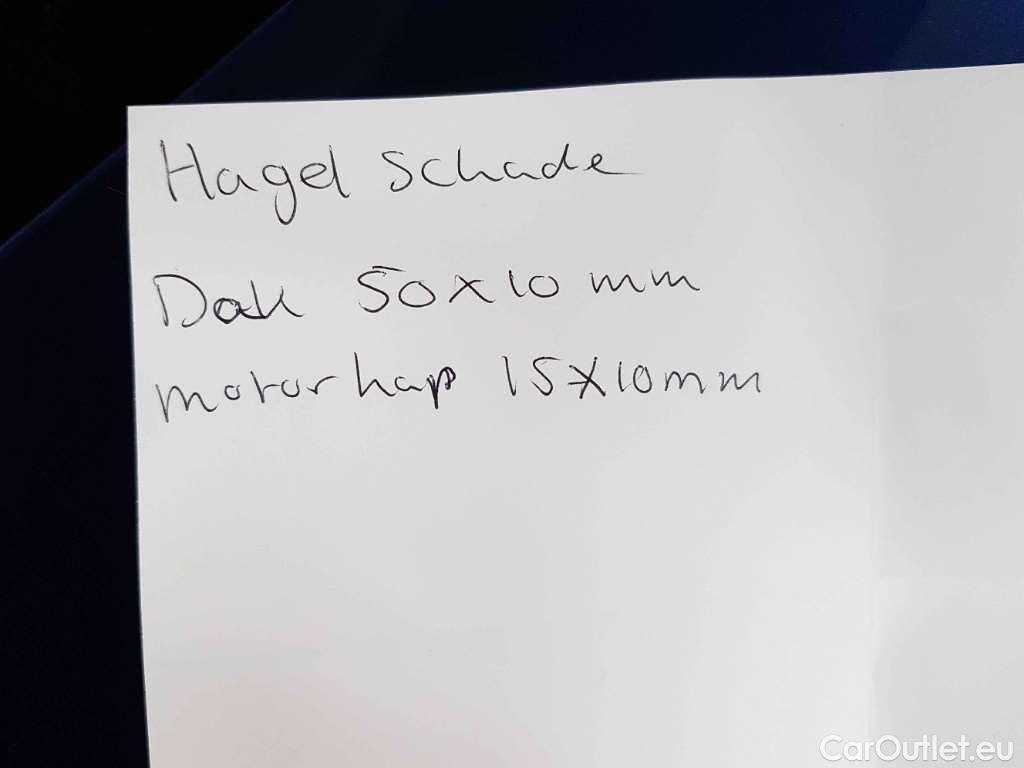 Hagel schade
Dak 50x10 mm
motorkap 15x10mm
CarOutlet.eu